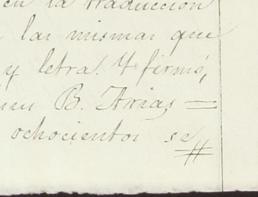 en la traduccion
las mismas que
y letra. Y firmó,
B. Arias =
ochocientos se